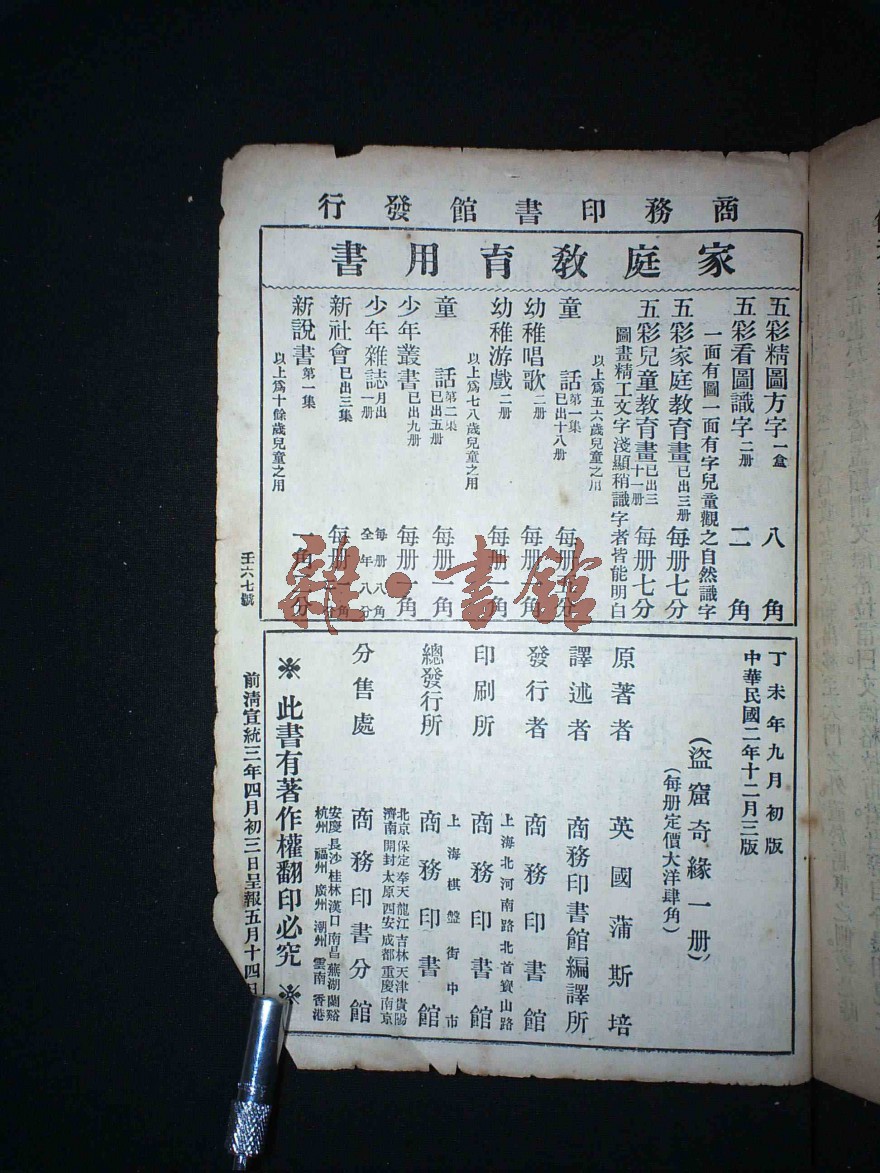 商務印書館發行
家庭教育用書
五彩精圖方字一盒 八角
五彩看圖識字二册 二角
一面有圖一面有字兒童觀之自然識字
五彩家庭教育畫已出三册 每册七分
五彩兒童教育畫已出三十一册 每册七分
圖畫精工文字淺顯稍識字者皆能明白
以上爲五六歲兒童之用
童話第一集已出十八册 每册五分
幼稚唱歌二册 每册一角
幼稚游戲二册 每册一角
以上爲七八歲兒童之用
童話第二集已出五册 每册一角
少年叢書已出九册 每册一角
少年雜誌月出一册 每册八分 全年八角
新社會已出三集 每册一角
新說書第一集 一角
以上爲十餘歲兒童之用
壬六七號
丁未年九月初版
中華民國二年十二月三版
(盜窟奇緣一册)
(每册定價大洋肆角)
原著者 英國蒲斯培
譯述者 商務印書館編譯所
發行者 商務印書館
上海北河南路北首寶山路
印刷所 商務印書館
上海棋盤街中市
總發行所 商務印書館
北京保定奉天龍江吉林天津貴陽
濟南開封太原西安成都重慶南京
分售處 商務印書分館
安慶長沙桂林漢口南昌蕪湖蘭谿
杭州福州廣州潮州雲南香港
※此書有著作權翻印必究※
前清宣統三年四月初三日呈報五月十四日
雜·書館